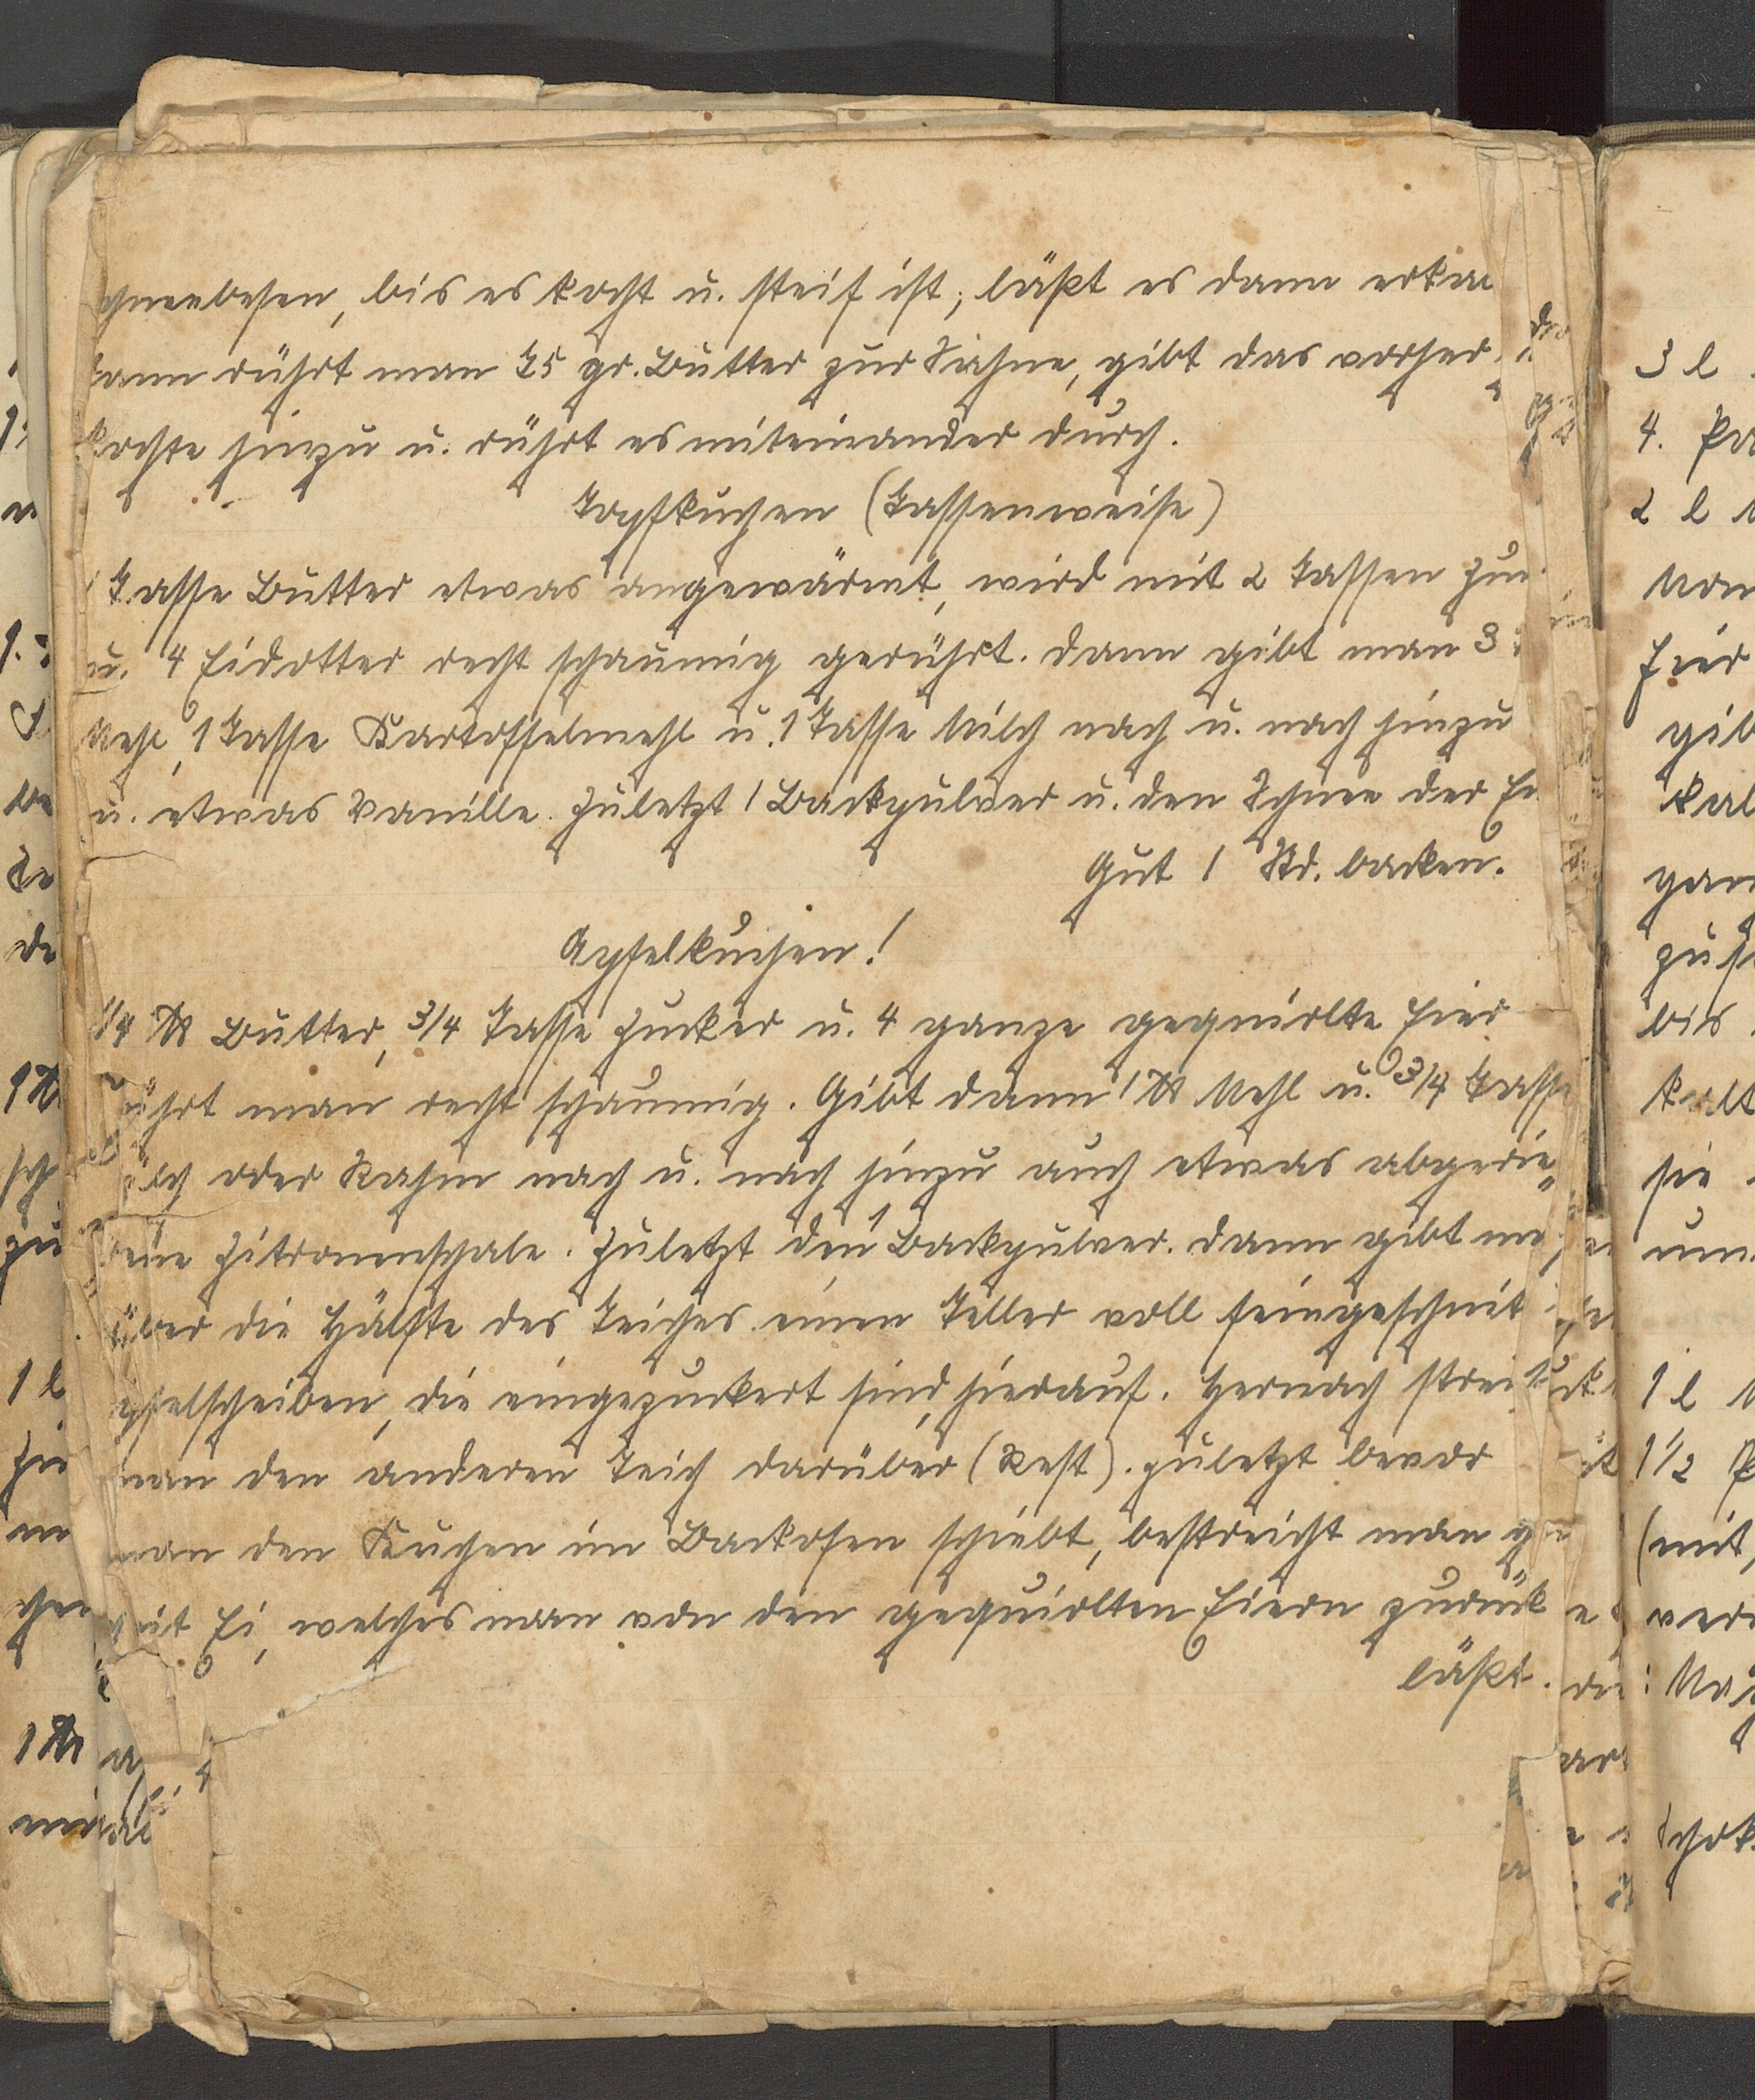 chneebesen, bis es kocht u. steif ist; läßt es dann erkal
dann rührt man 75 gr. Butter zur Sahne, gibt das vorher
kochte hinzu u. rührt es miteinander durch.
Topfkuchen (Tassenweise)
1 Tasse Butter etwas angewärmt, wird mit 2 Tassen Zuc
u. 4 Eidotter recht schaumig gerührt. Dann gibt man 3
Mehl, 1 Tasse Kartoffelmehl u. 1 Tasse Milch nach u. nach hinzu
u. etwas Vanille. Zuletzt 1 Backpulver u. den Schnee der Ei
Gut 1 Std. backen.
Apfelkuchen!
1/4 ℔ Butter, 3/4 Tasse Zucker u. 4 ganze gequirlte Eier
ührt man recht schaumig. Gibt dann 1 ℔ Mehl u. 3/4 Tasse
ilch oder Rahm nach u. nach hinzu auch etwas abgerie„
bene Zitronenschale. Zuletzt den 1 Backpulver. Dann gibt ma
über die Hälfte des Teiches einen Teller voll feingeschnit
pfelscheiben, die eingezuckert sind, hierauf. Hernach strei
man den anderen Teich darüber (Rest). Zuletzt bevor
man den Kuchen im Backofen schiebt, bestreicht man
mit Ei, welches man von den gequirlten Eiern zurück
läßt.
3 l
4.
2 l
Eier
gib
bis
kalt
sie
1 l
1 1/2
(mit